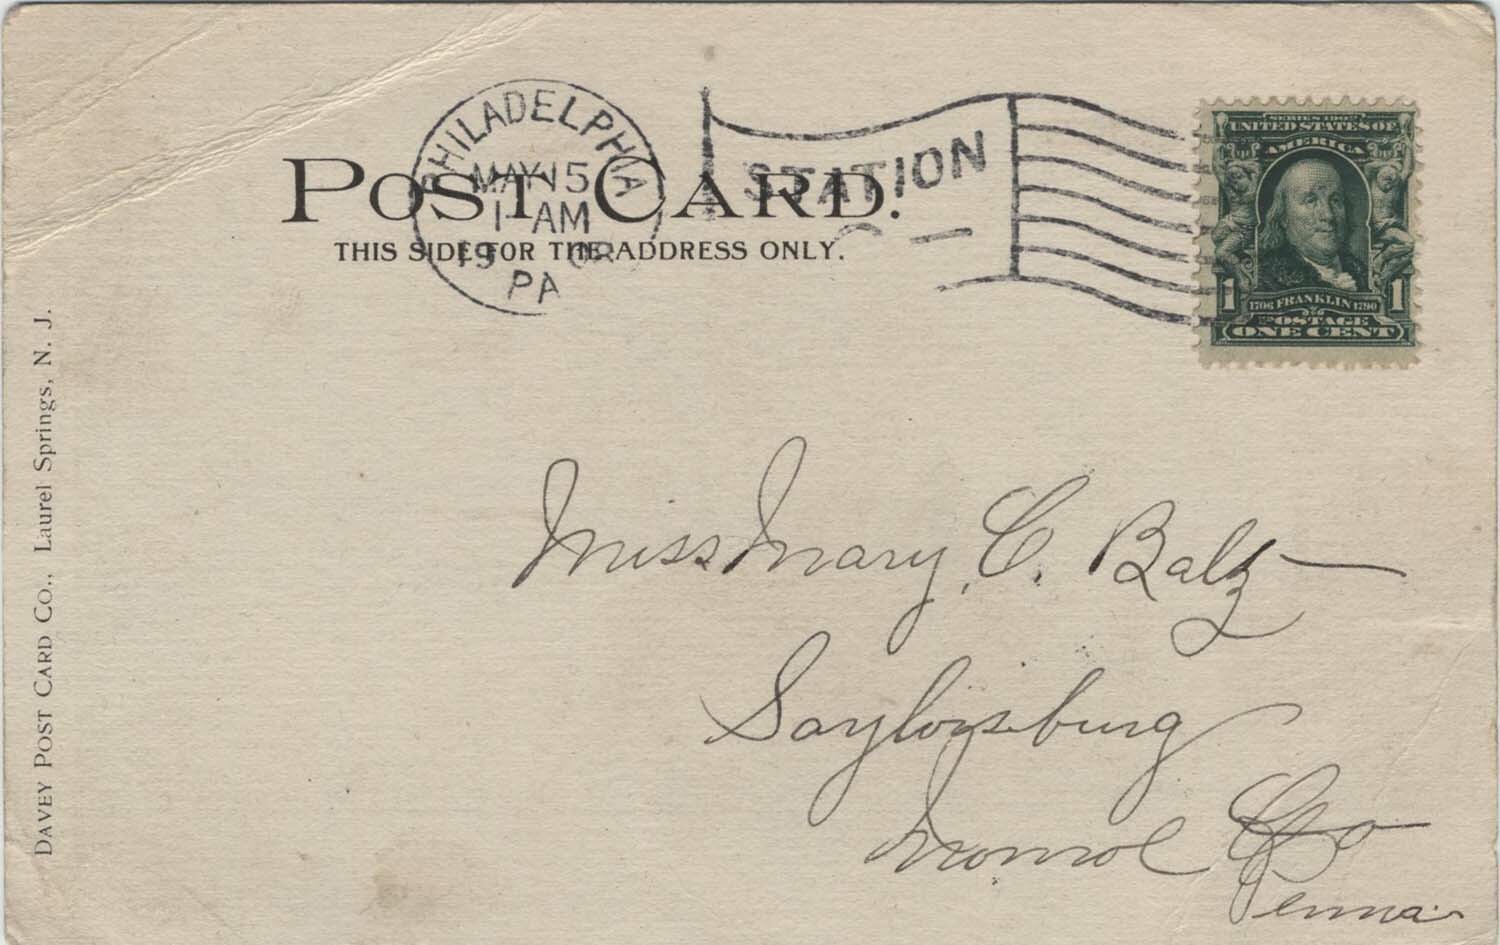 PHILADELPHIA
MAY 15
1-AM
19
PA
STATION
C
POST CARD.
THIS SIDE FOR THE ADDRESS ONLY.
SERIES 1902
UNITED STATES OF
AMERICA
1706 FRANKLIN 1790
1 1
POSTAGE
ONE CENT
Miss Mary, C. Balz
Saylorsburg
Monroe Co
Penna.
DAVEY POST CARD CO., Laurel Springs, N. J.